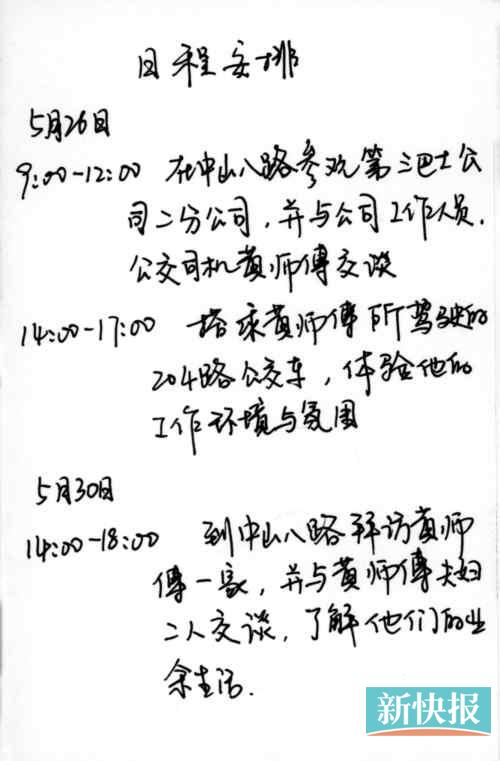 日程安排
5月26日
9:00-12:00 在中山八路参观第三巴士公
司二分公司，并与公司工作人员、
公交司机黄师傅交谈
14:00-17:00 搭乘黄师傅所驾驶的
204路公交车，体验他的
工作环境与氛围
5月30日
14:00-18:00 到中山八路拜访黄师
傅一家，并与黄师傅夫妇
二人交谈，了解他们的业
余生活.
新快报